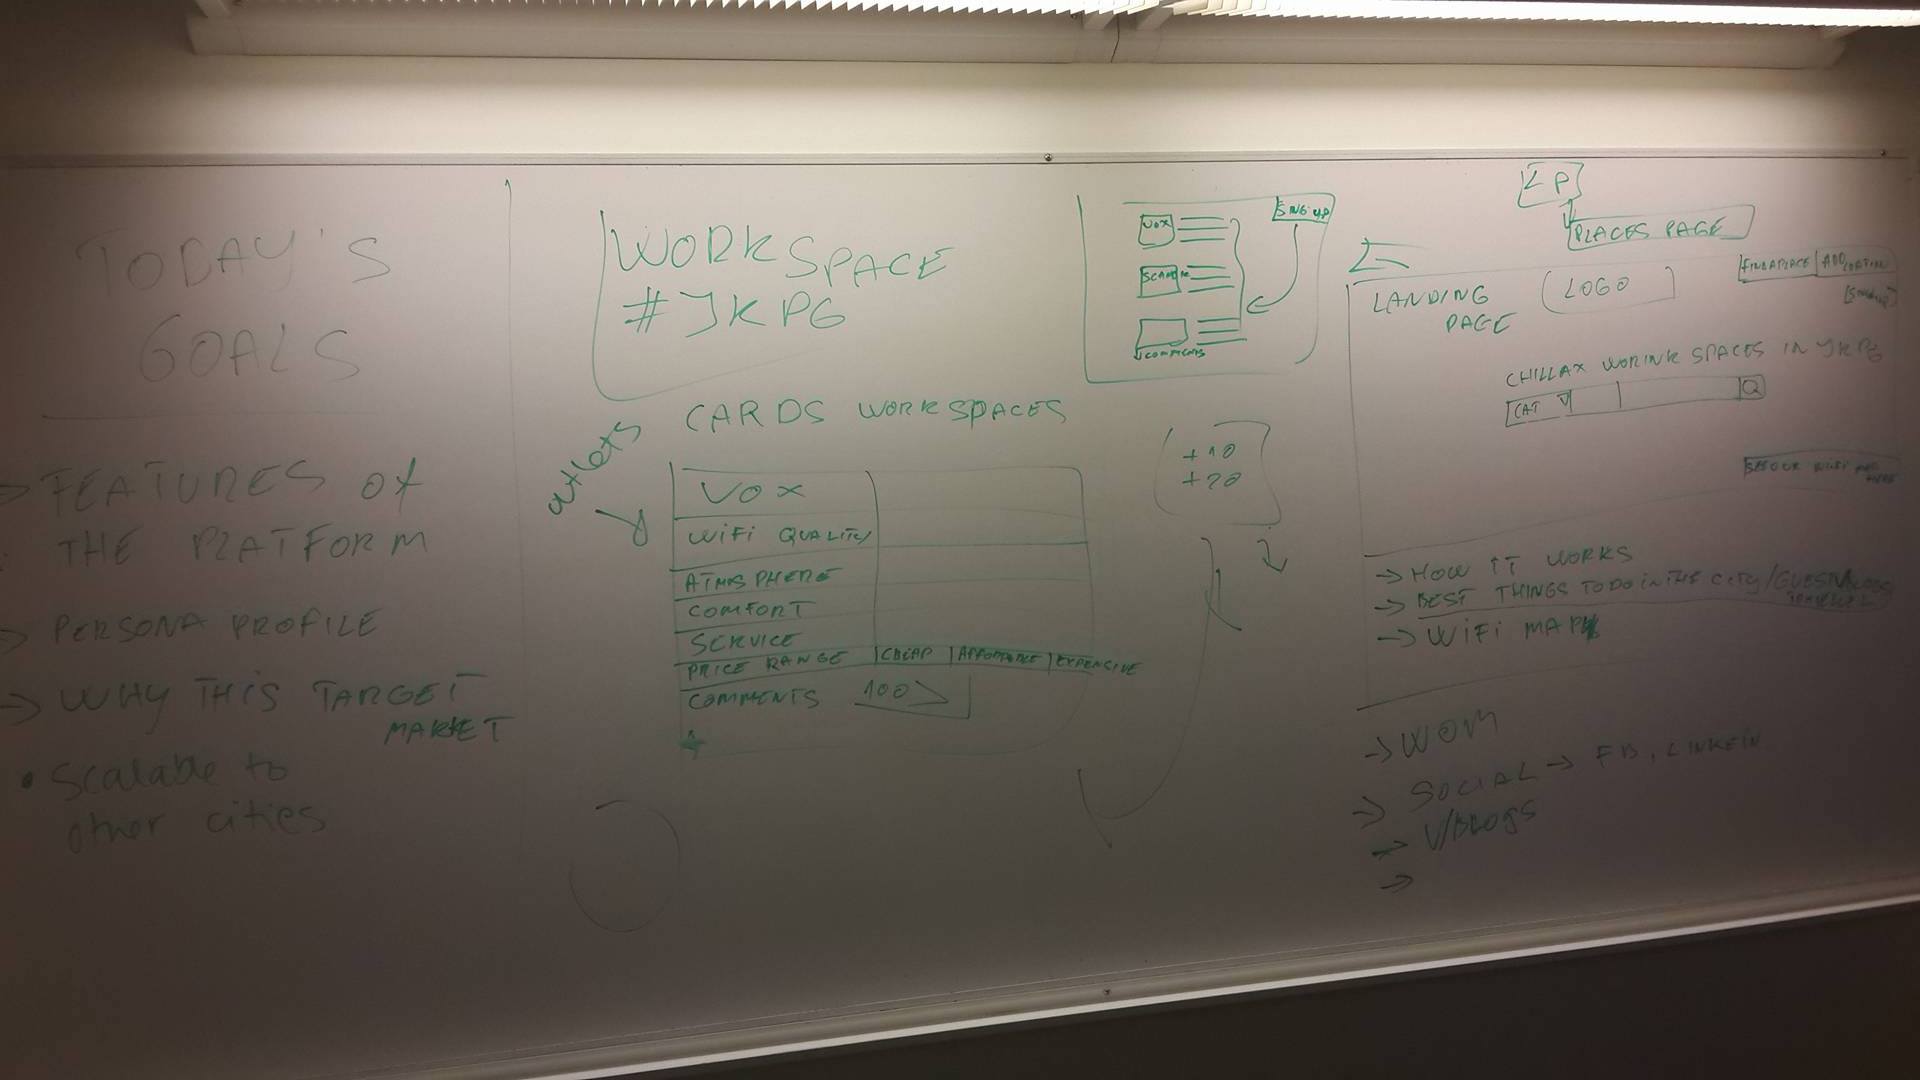 TODAY'S
GOALS
→ FEATURES OF
THE PLATFORM
→ PERSONA PROFILE
→ WHY THIS TARGET
MARKET
• Scalable to
other cities
WORKSPACE
# JKPG
CARDS WORKSPACES
outlets
VOX
WIFI QUALITY
ATMSPHERE
COMFORT
SERVICE
PRICE RANGE | CHEAP | AFFORDABLE | EXPENSIVE
COMMENTS 100 >
VOX
COMMENTS
+10
+20
LP
PLACES PAGE
FIND A PLACE
LANDING
PAGE
LOGO
CHILLAX WORINK SPACES IN JKPG
CAT
→ HOW IT WORKS
→ BEST THINGS TO DO IN THE CITY/
→ WIFI MAP
→ WOM
→ SOCIAL → FB, LINKEIN
→ V/BLOGS
→